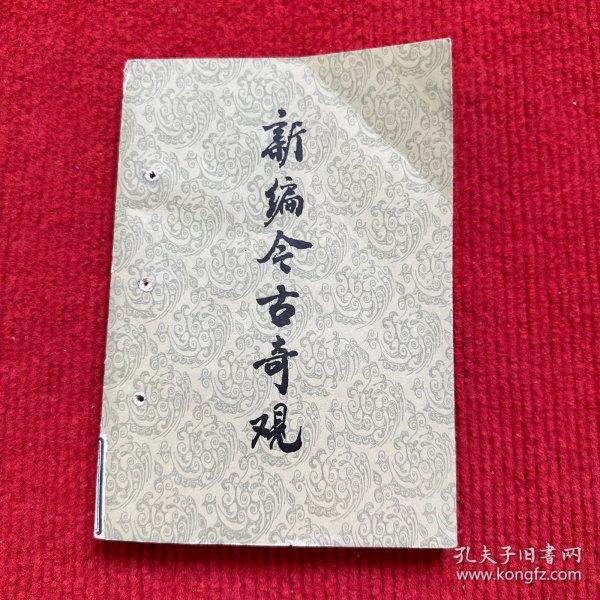 新编今古奇观
孔夫子旧书网
www.kongfz.com